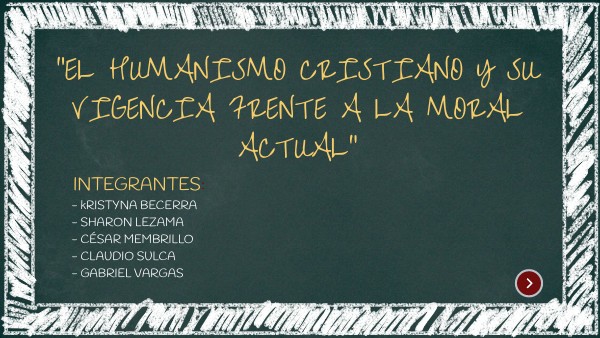 "EL HUMANISMO CRISTIANO Y SU
VIGENCIA FRENTE A LA MORAL
ACTUAL"
INTEGRANTES
- kRISTYNA BECERRA
- SHARON LEZAMA
- CÉSAR MEMBRILLO
- CLAUDIO SULCA
- GABRIEL VARGAS